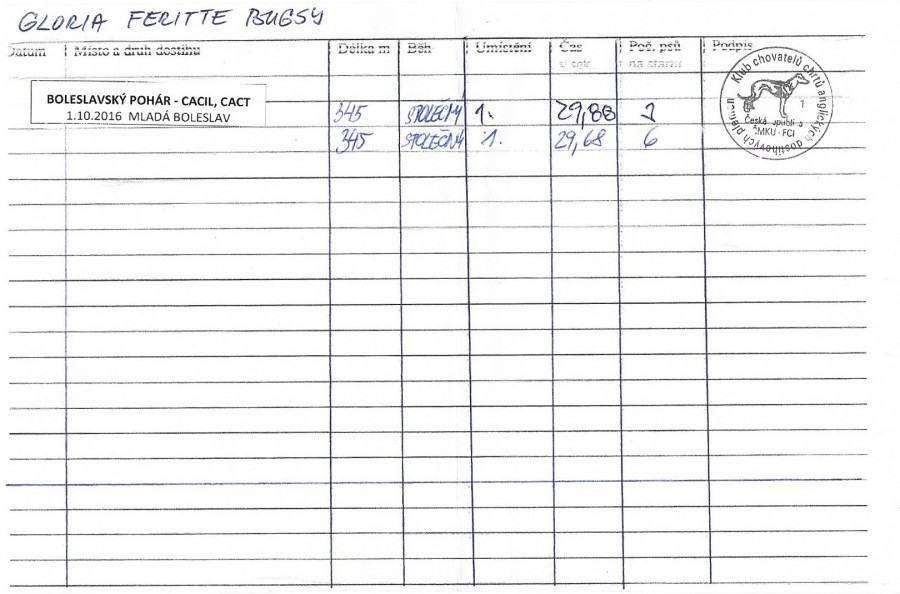 GLORIA FERITTE BUGSY
Datum Místo a druh dostihu Délka m Běh Umístění Čas v sek Poč. psů na startu Podpis
BOLESLAVSKÝ POHÁR - CACIL, CACT
1.10.2016 MLADÁ BOLESLAV
345 SPOLEČNÝ 1. 29,88
345 SPOLEČNÝ 1. 29,68 6
Klub chovatelů chrtů anglických dostihových plemen
1
Česká republika
ČMKU - FCI